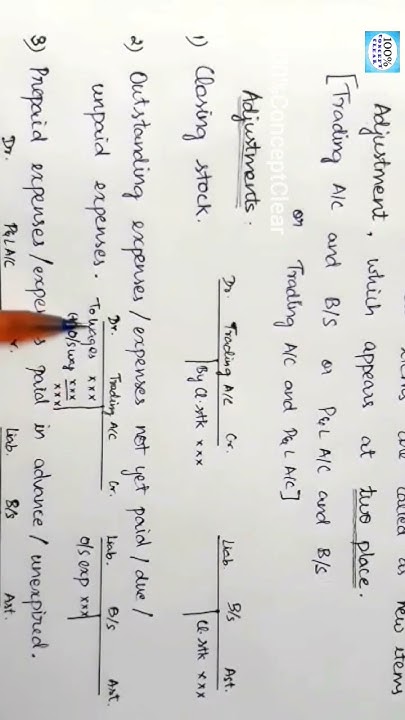 100%
CONCEPT
CLEAR
called as new items
Adjustment, which appears at two place.
[Trading A/c and B/s or P&L A/c and B/s
or Trading A/c and P&L A/c]
ConceptClear
Adjustments:
1) Closing stock.
Dr. Trading A/c Cr.
By Cl. stk xxx
Liab. B/s Ast.
Cl. stk xxx
2) Outstanding expenses / expenses not yet paid / due /
unpaid expenses.
Dr. Trading A/c Cr.
To wages xxx
(+) O/s wag xxx
xxx
Liab. B/s Ast.
O/s exp xxx
3) Prepaid expenses / paid in advance / unexpired.
Dr. P&L A/c
Liab. B/s Ast.